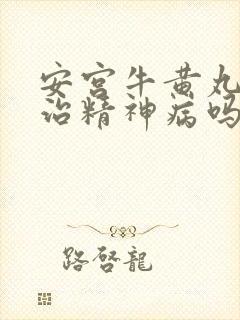 安宫牛黄丸
治精神病吗
路啓龍